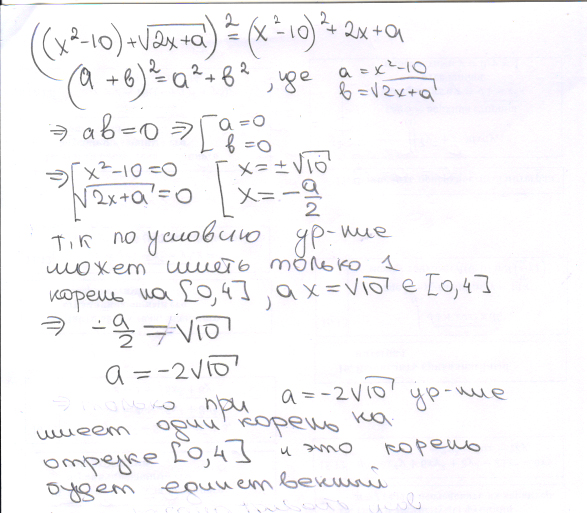 ((x²-10)+√(2x+a))² = (x²-10)²+2x+a
(a+b)²=a²+b², где a=x²-10
b=√(2x+a)
⇒ ab=0 ⇒ [a=0
b=0
⇒ [x²-10=0 [x=±√10
√(2x+a)=0 x=-a/2
т.к по условию ур-ние
может иметь только 1
корень на [0,4], а x=√10 ∈ [0,4]
⇒ -a/2 = √10
a=-2√10
при a=-2√10 ур-ние
имеет один корень на
отрезке [0,4] и это корень
будет единственный